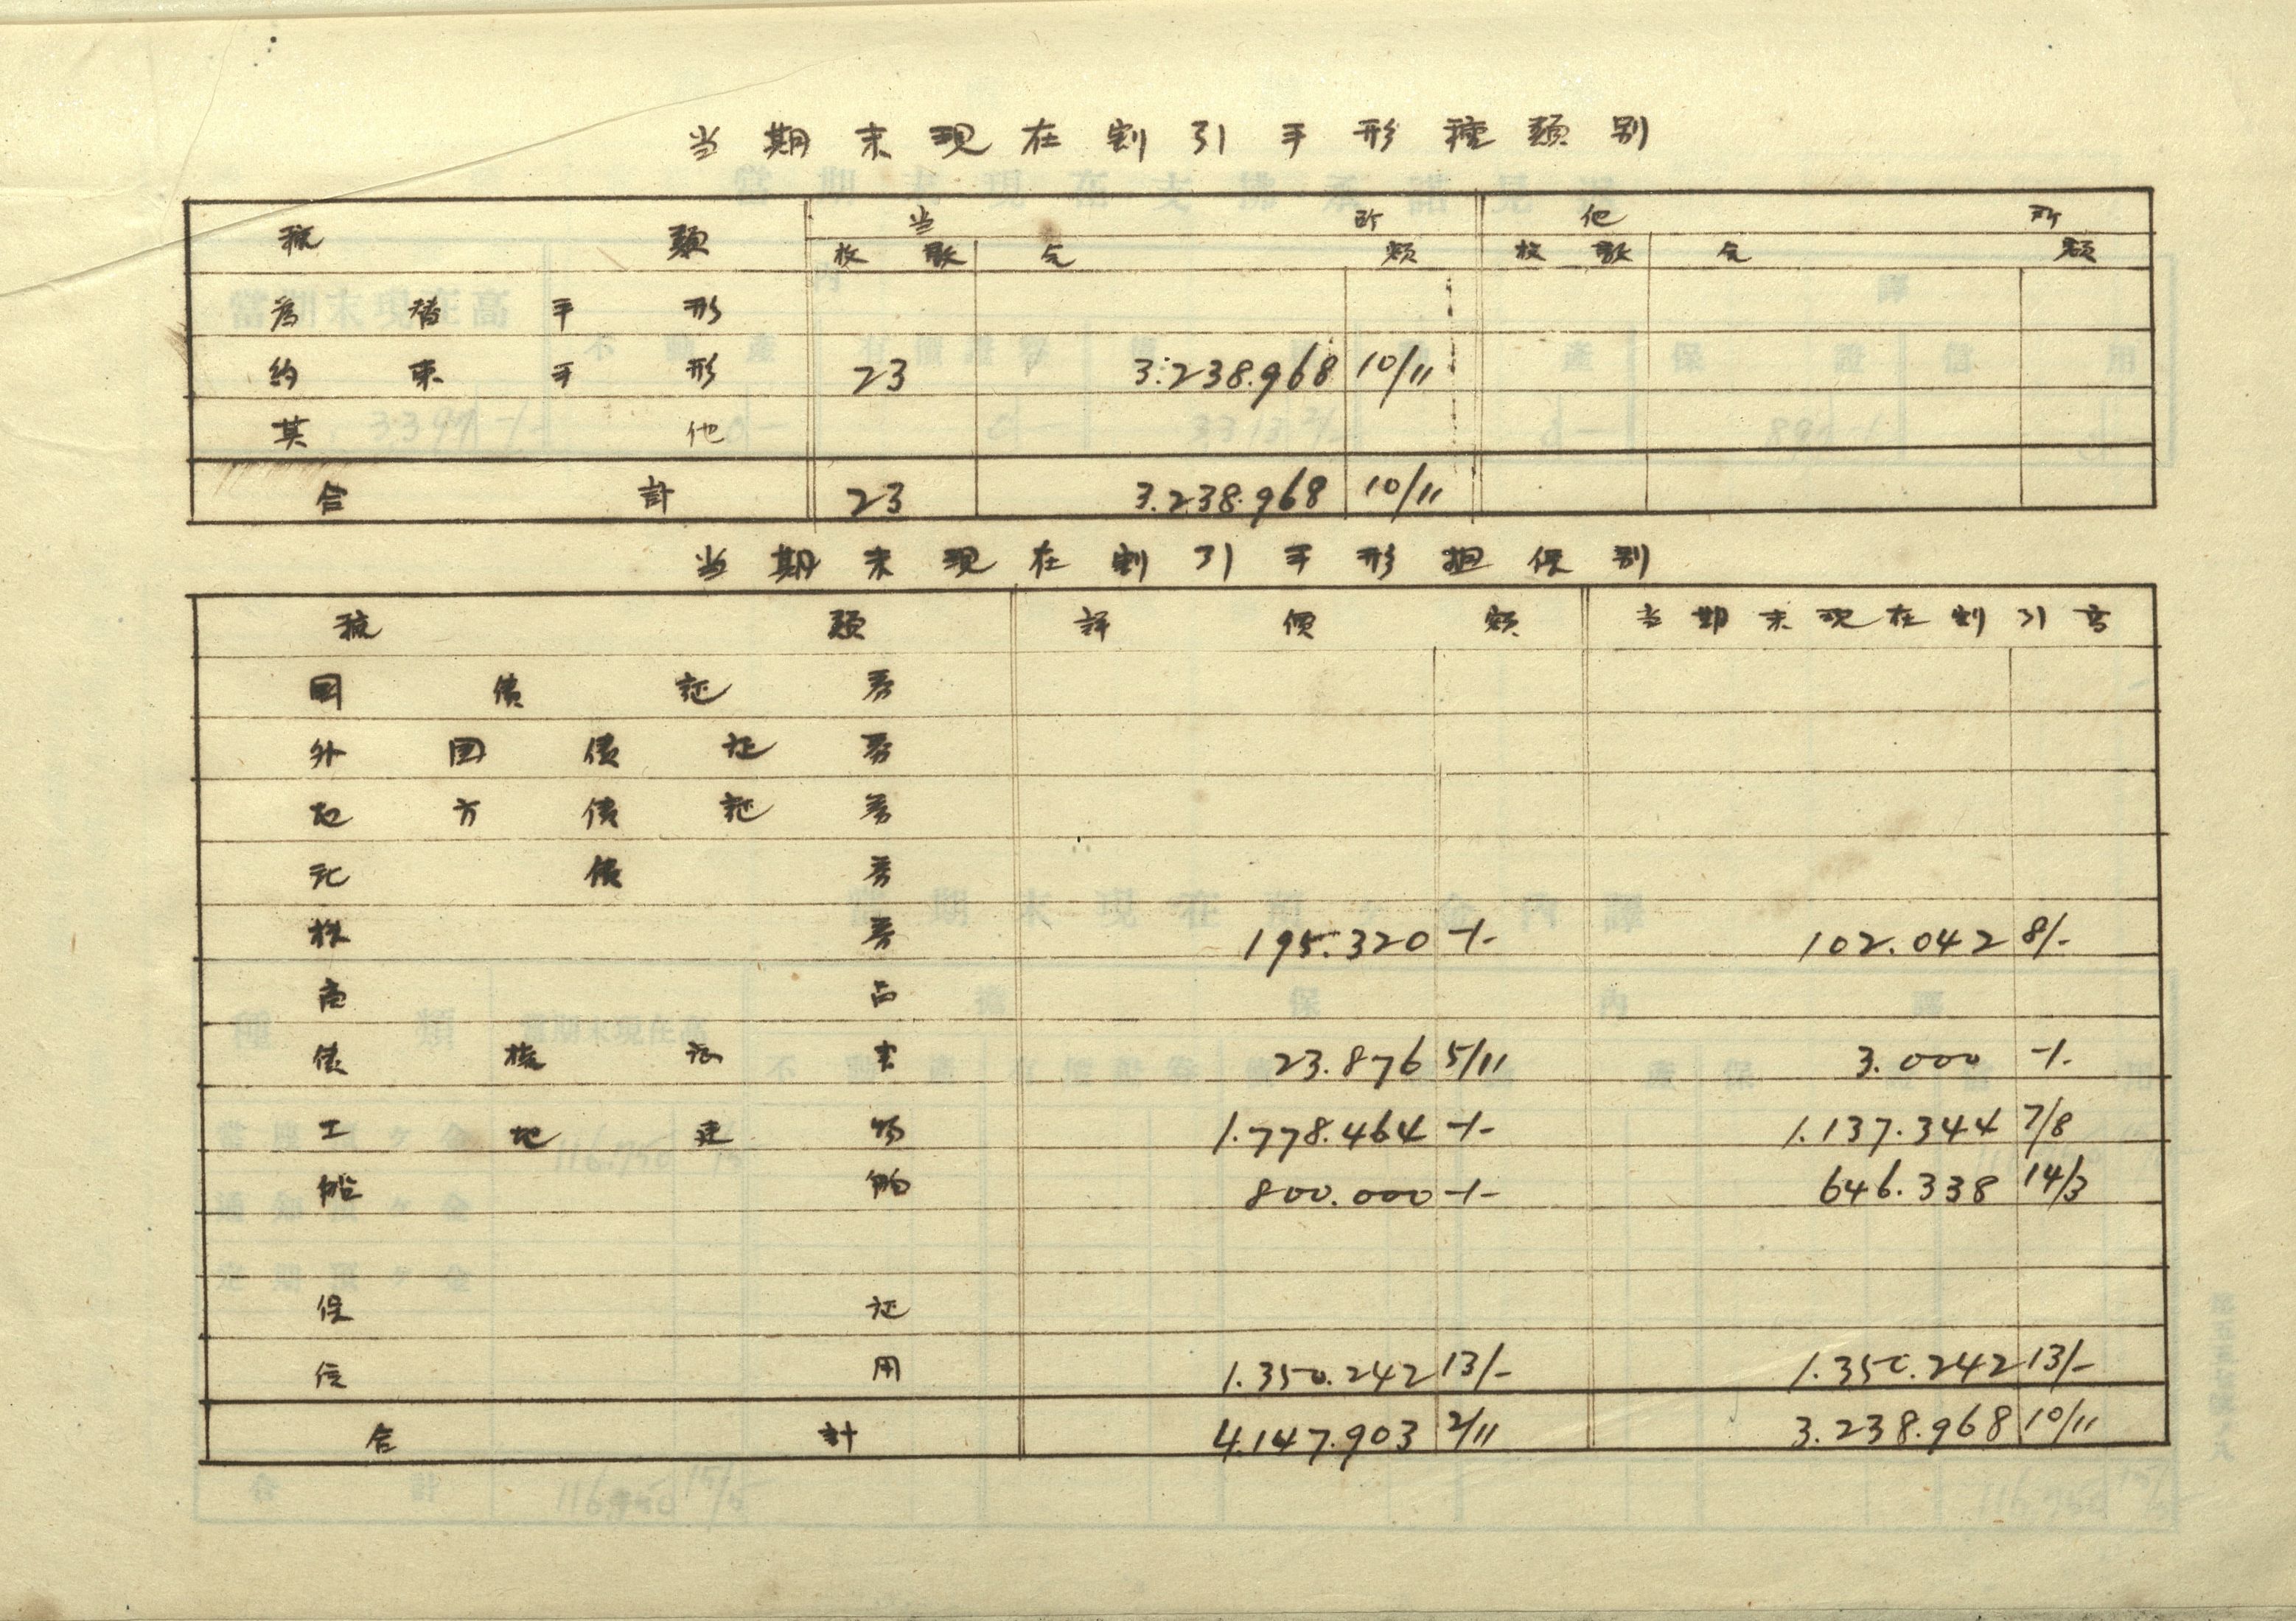 当期末現在割引手形種類別
種類 当所 他所
枚数 金額 枚数 金額
為替手形
約束手形 23 3.238.968 10/11
其他
合計 23 3.238.968 10/11
当期末現在割引手形担保別
種類 評價額 当期末現在割引高
国債証券
外国債証券
地方債証券
社債券
株券 195.320 -/- 102.042 8/-
商品
債權証書 23.876 5/11 3.000 -/-
土地建物 1.778.464 -/- 1.137.344 7/8
船舶 800.000 -/- 646.338 14/3
保証
信用 1.350.242 13/- 1.350.242 13/-
合計 4.147.903 2/11 3.238.968 10/11